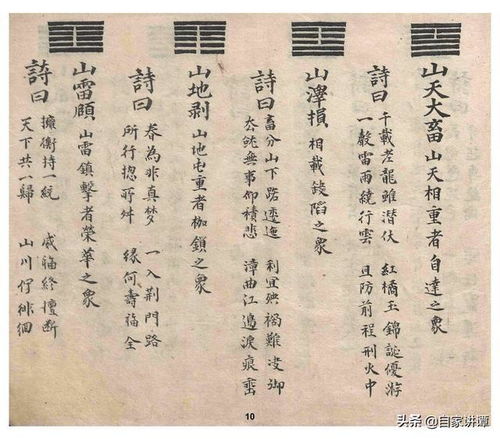 山天大畜 山天相重者自達之象
詩曰
千載老龍雖潛伏 紅橘玉錦誕優游
一聲雷雨繞行雲 且防前程刑火中
山澤損 相載缺陷之象
詩曰
畜分山下路逶迤 利宜殃禍難
無事仰積悲 漳曲江邊淚痕
山地剝 山地屯重者枷鎖之象
詩曰
春為非真梦 一入荆門路
所行揔所舛 緣何壽福全
山雷頤 山雷鎮擊者榮華之象
詩曰
擁衡持一統 威福終擅斷
天下共一歸 山川伊徘徊
10
头条 @自家讲谭